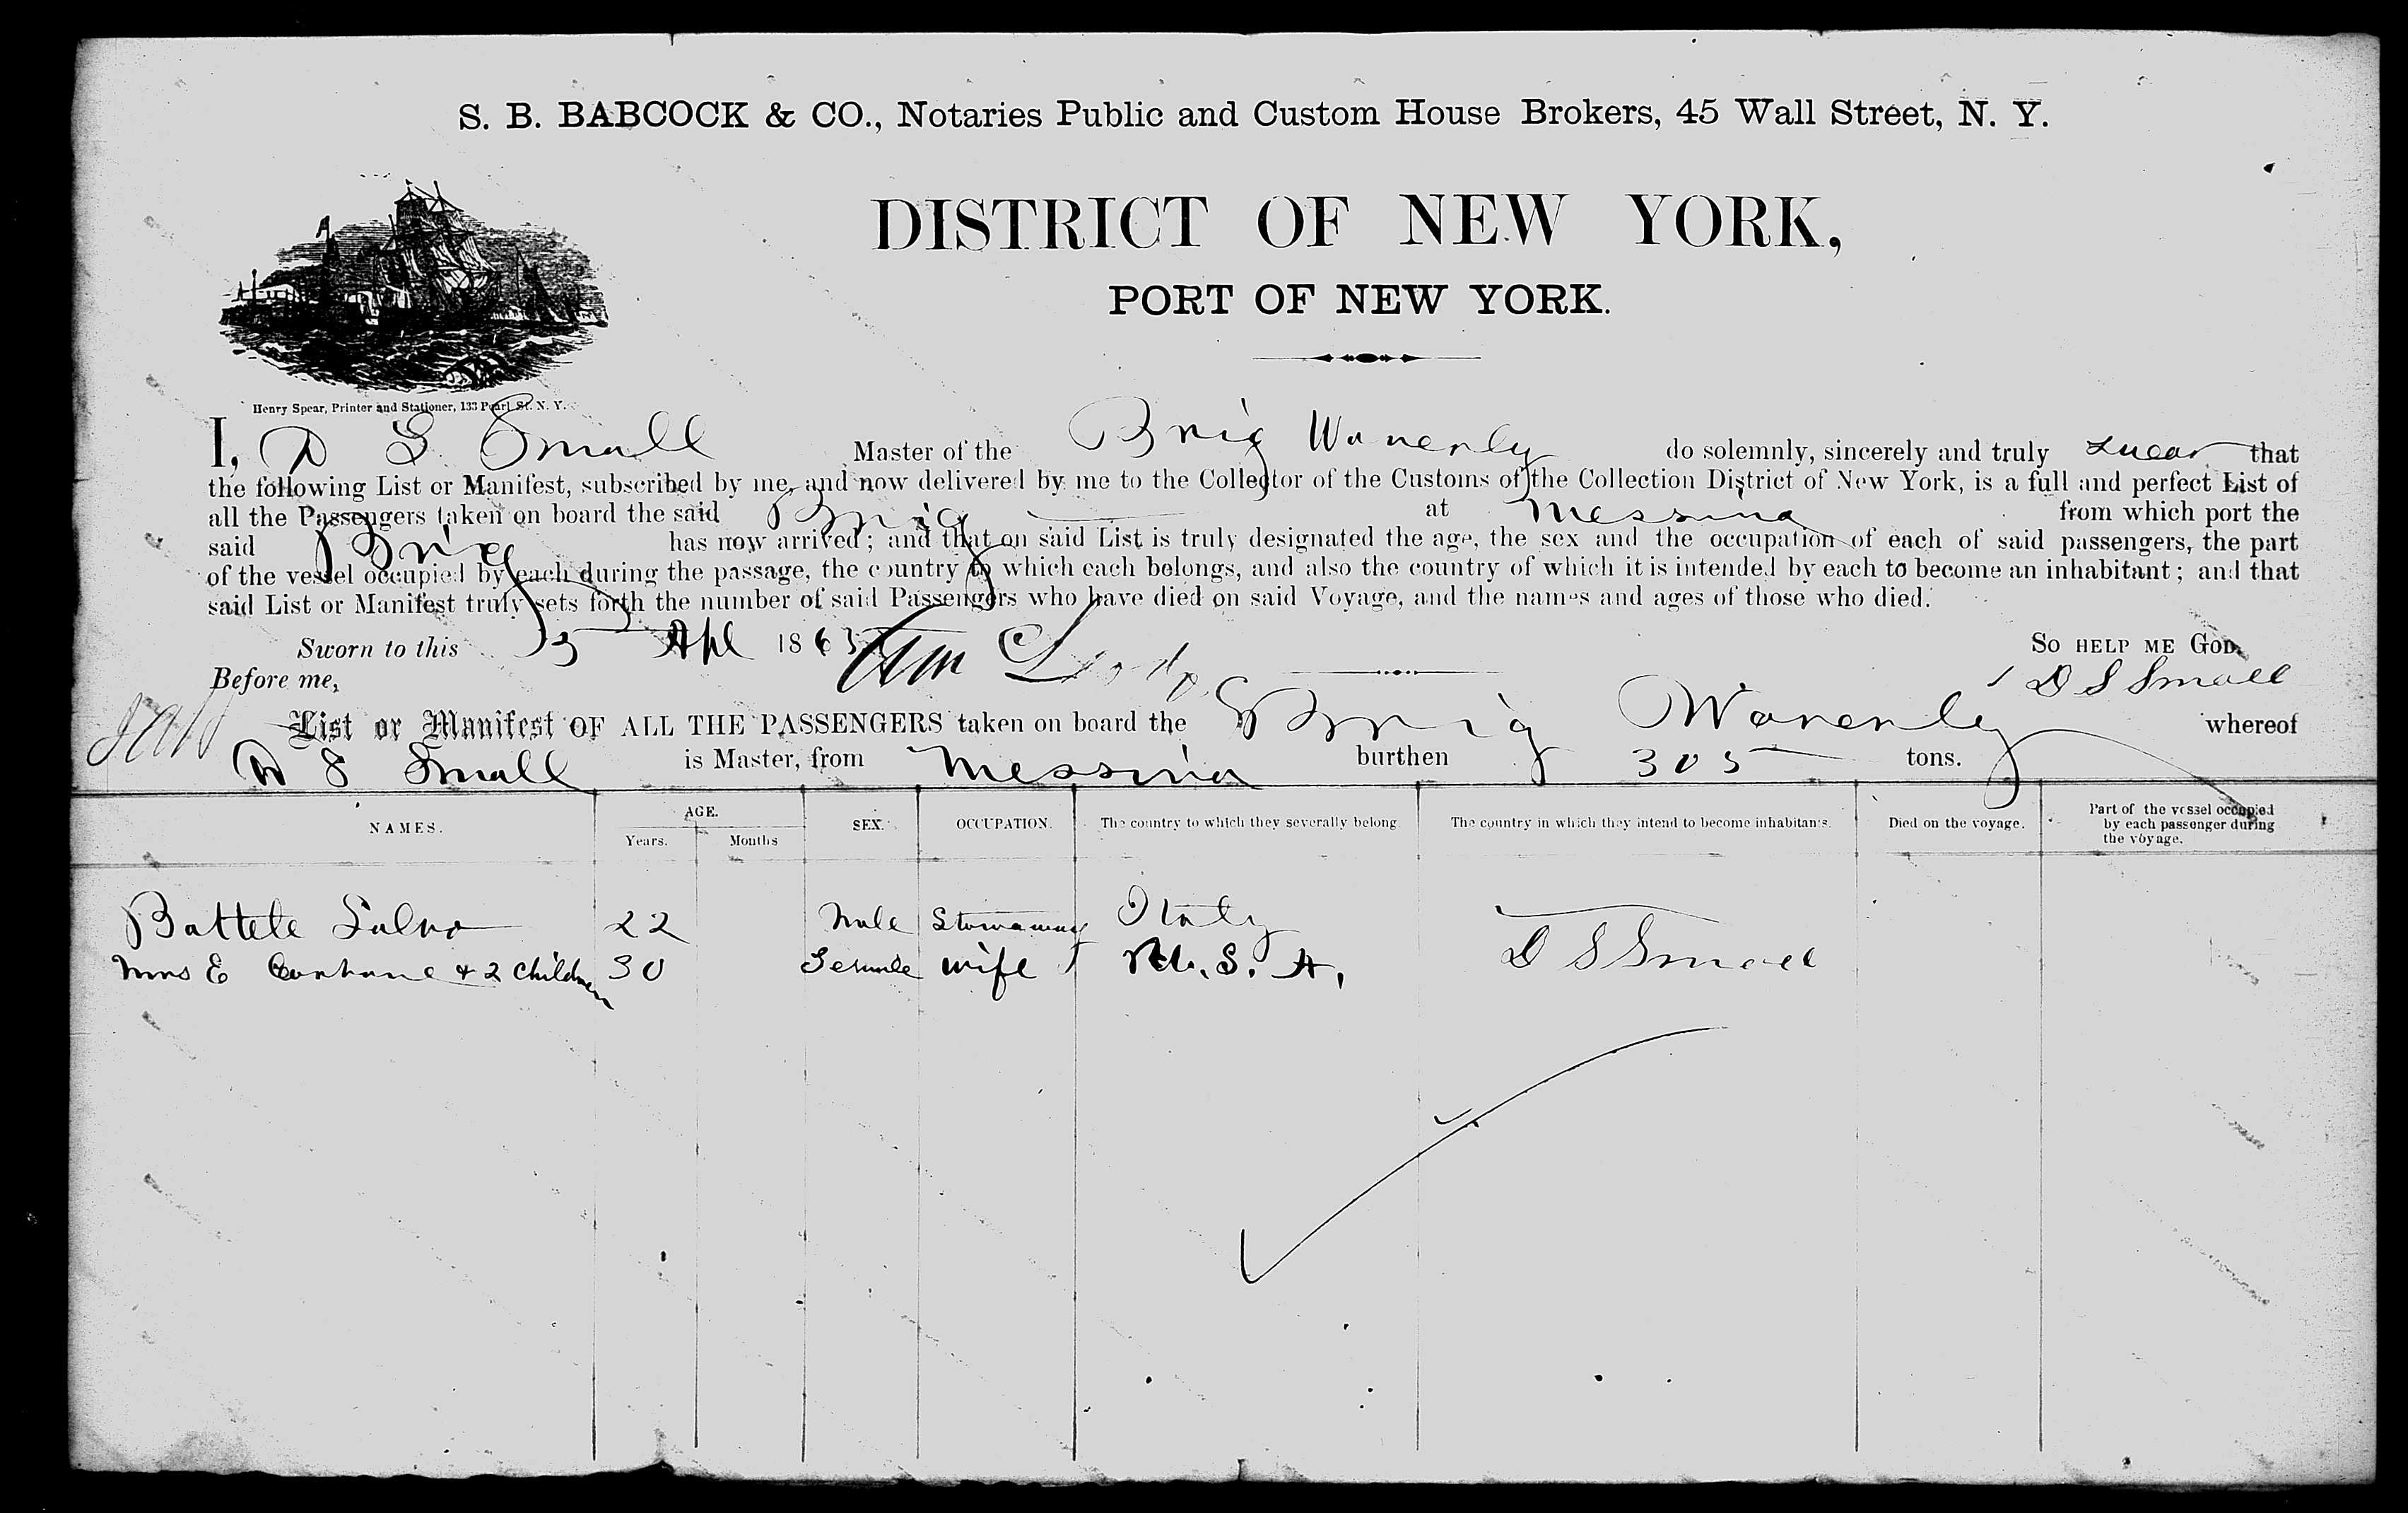 S. B. BABCOCK & CO., Notaries Public and Custom House Brokers, 45 Wall Street, N. Y.
DISTRICT OF NEW YORK,
PORT OF NEW YORK.
Henry Spear, Printer and Stationer, 133 Pearl St. N. Y.
I, D S. Small Master of the Brig Waverly do solemnly, sincerely and truly swear that
the following List or Manifest, subscribed by me, and now delivered by me to the Collector of the Customs of the Collection District of New York, is a full and perfect List of
all the Passengers taken on board the said Brig at Messina from which port the
said Brig has now arrived; and that on said List is truly designated the age, the sex and the occupation of each of said passengers, the part
of the vessel occupied by each during the passage, the country to which each belongs, and also the country of which it is intended by each to become an inhabitant; and that
said List or Manifest truly sets forth the number of said Passengers who have died on said Voyage, and the names and ages of those who died.
Sworn to this Apl 1863 So HELP ME GOD.
Before me, D S Small
List or Manifest OF ALL THE PASSENGERS taken on board the Brig Waverly whereof
D S Small is Master, from Messina burthen 305 tons.
NAMES. AGE. Years. Months SEX. OCCUPATION. The country to which they severally belong The country in which they intend to become inhabitants. Died on the voyage. Part of the vessel occupied by each passenger during the voyage.
Battele Salvo 22 Male Stowaway Italy
Mrs E & 2 Children 30 Female Wife U. S. A. D S Small